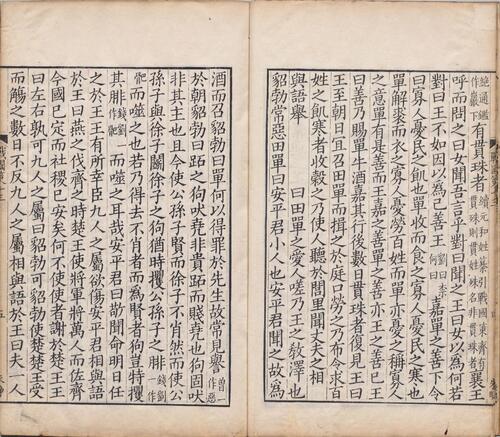 通鑑作巖下有貫珠者續元和姓纂引戰國策齊有貫珠則貫姓珠名非貫珠者襄王
呼而問之曰女聞吾言乎對曰聞之王曰女以為何若
對曰王不如因以為己善王曰嘉單之善下令
曰寡人憂民之飢也單收而食之寡人憂民之寒也
單解裘而衣之寡人憂勞百姓而單亦憂之稱寡人
之意單有是善而王嘉之善單之善亦王之善已王
曰善乃賜單牛酒嘉其行後數日貫珠者復見王曰
王至朝日宜召田單而揖之於庭口勞之乃布令求百
姓之飢寒者收穀之乃使人聽於閭里聞丈夫之相
與語舉 曰田單之愛人嗟乃王之教澤也
貂勃常惡田單曰安平君小人也安平君聞之故為
酒而召貂勃曰單何以得罪於先生故常見譽曾一作惡
於朝貂勃曰跖之狗吠堯非貴跖而賤堯也狗固吠
非其主也且今使公孫子賢而徐子不肖然而使公
孫子與徐子鬭徐子之狗猶時攫公孫子之腓錢劉一作
肥而噬之也若乃得去不肖者而為賢者狗豈特攫
其腓錢劉作肥而噬之耳哉安平君曰敬聞命明日任
之於王王有所幸臣九人之屬欲傷安平君相與語
於王曰燕之伐齊之時楚王使將軍將萬人而佐齊
今國已定而社稷已安矣何不使使者謝於楚王王
曰左右孰可九人之屬曰貂勃可貂勃使楚楚王受
而觴之數日不反九人之屬相與語於王曰夫一人